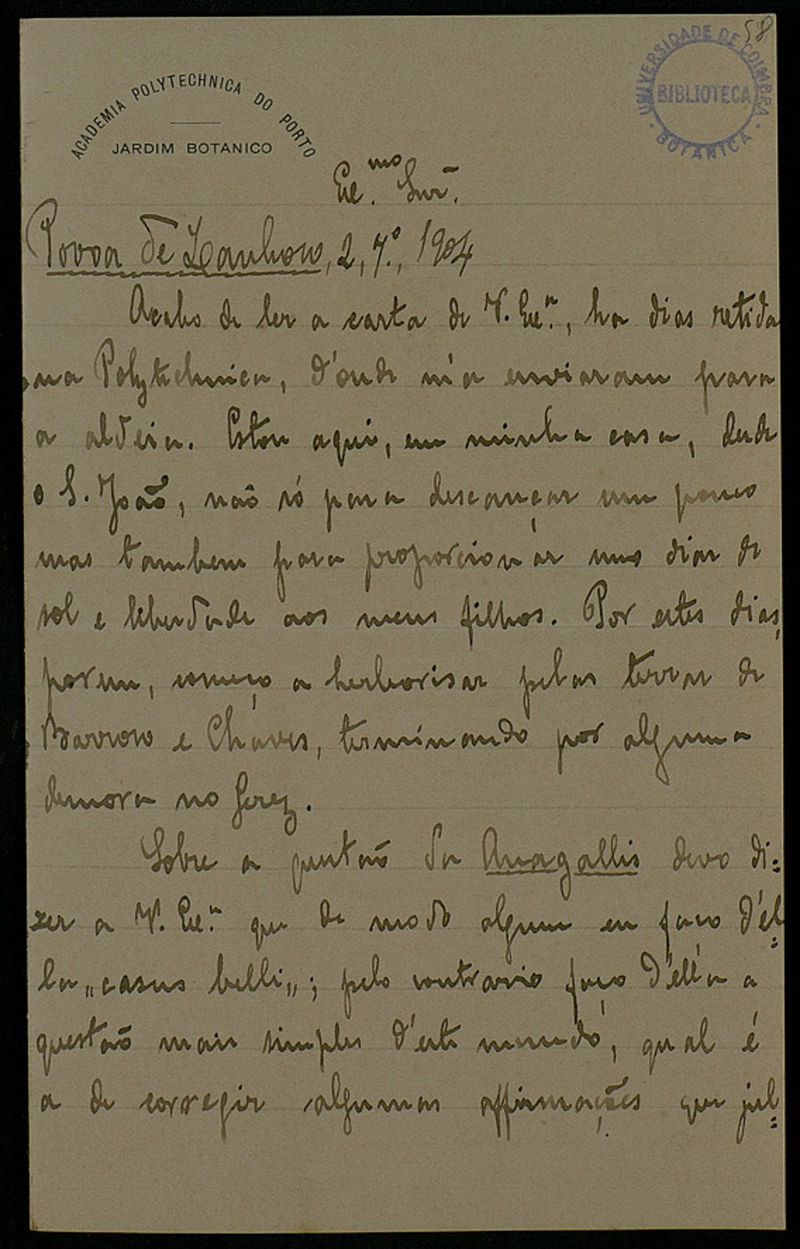 58
UNIVERSIDADE DE COIMBRA
BIBLIOTECA
BOTANICA
ACADEMIA POLYTECHNICA DO PORTO
JARDIM BOTANICO
Exc.mo Snr.
Povoa de Lanhoso, 2, 7.º, 1904
Acabo de ler a carta de V. Exc.ª, ha dias retida
na Polytechnica, d'onde m'a enviaram para
a aldeia. Estou aqui, em minha casa, desde
o S. João, não só para descançar um pouco
mas tambem para proporcionar uns dias de
sol e liberdade aos meus filhos. Por estes dias,
porem, começo a herborisar pelas terras de
Barroso e Chaves, terminando por alguma
demora no Gerez.
Sobre a questão da Anagallis devo di=
zer a V. Exc.ª que de modo algum eu faço d'el=
la „casus belli„; pelo contrario faço d'ella a
questão mais simples d'este mundo, qual é
a de corregir algumas affirmações que jul=